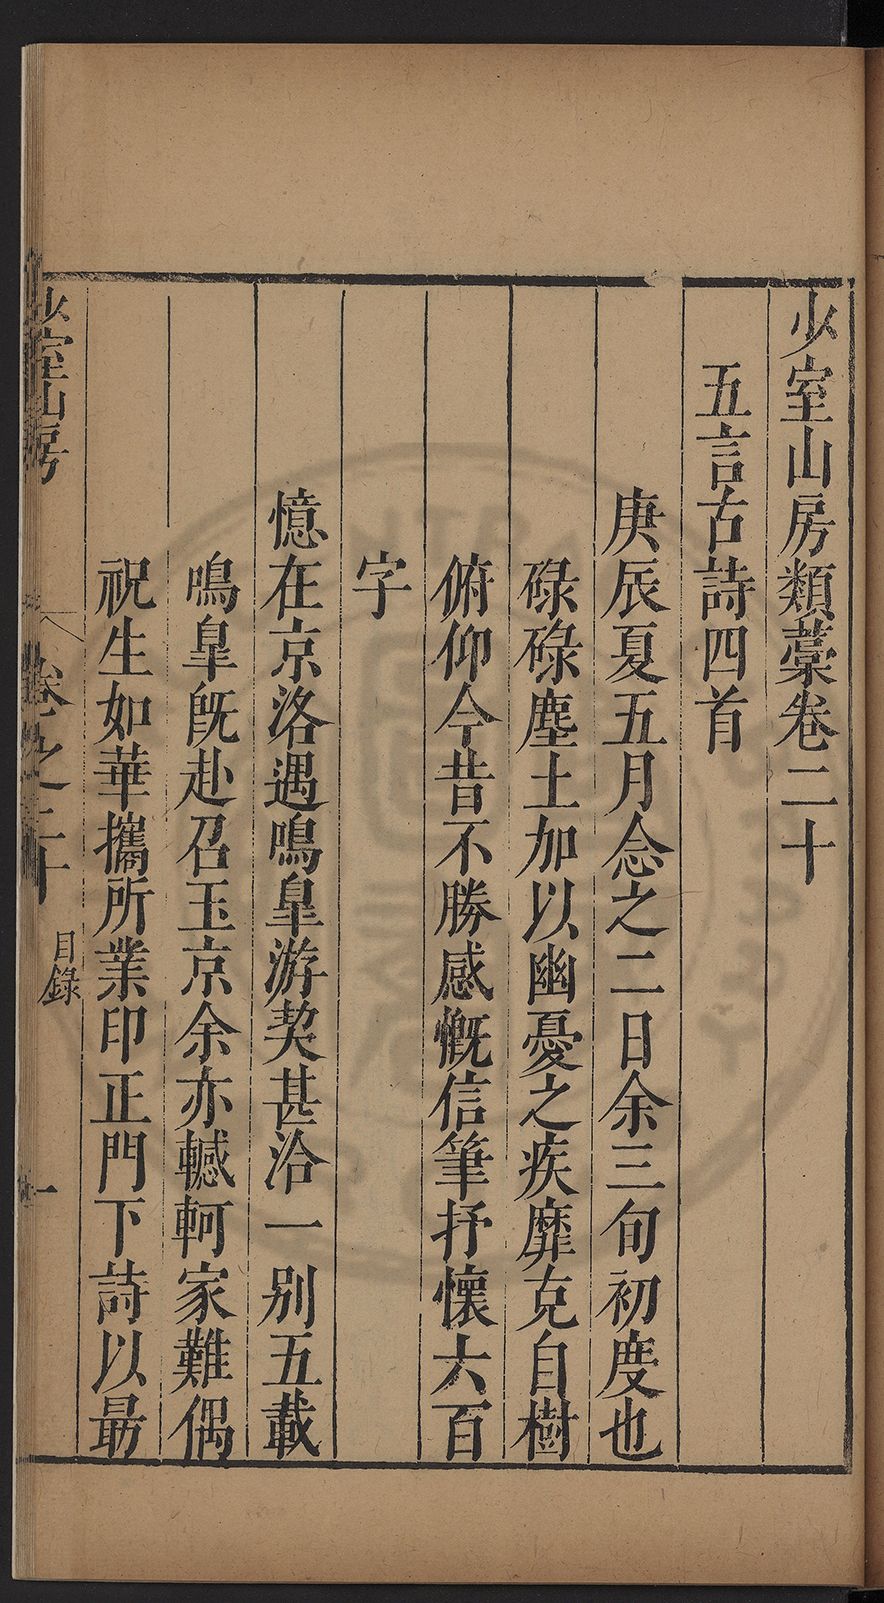 少室山房類藳卷二十
五言古詩四首
庚辰夏五月念之二日余三旬初度也
碌碌塵土加以幽憂之疾靡克自樹
俯仰今昔不勝感慨信筆抒懷六百
字
憶在京洛遇鳴臯游契甚洽一别五載
鳴臯旣赴召玉京余亦轗軻家難偶
祝生如華攜所業印正門下詩以最
少室山房
卷之二十
目錄
一